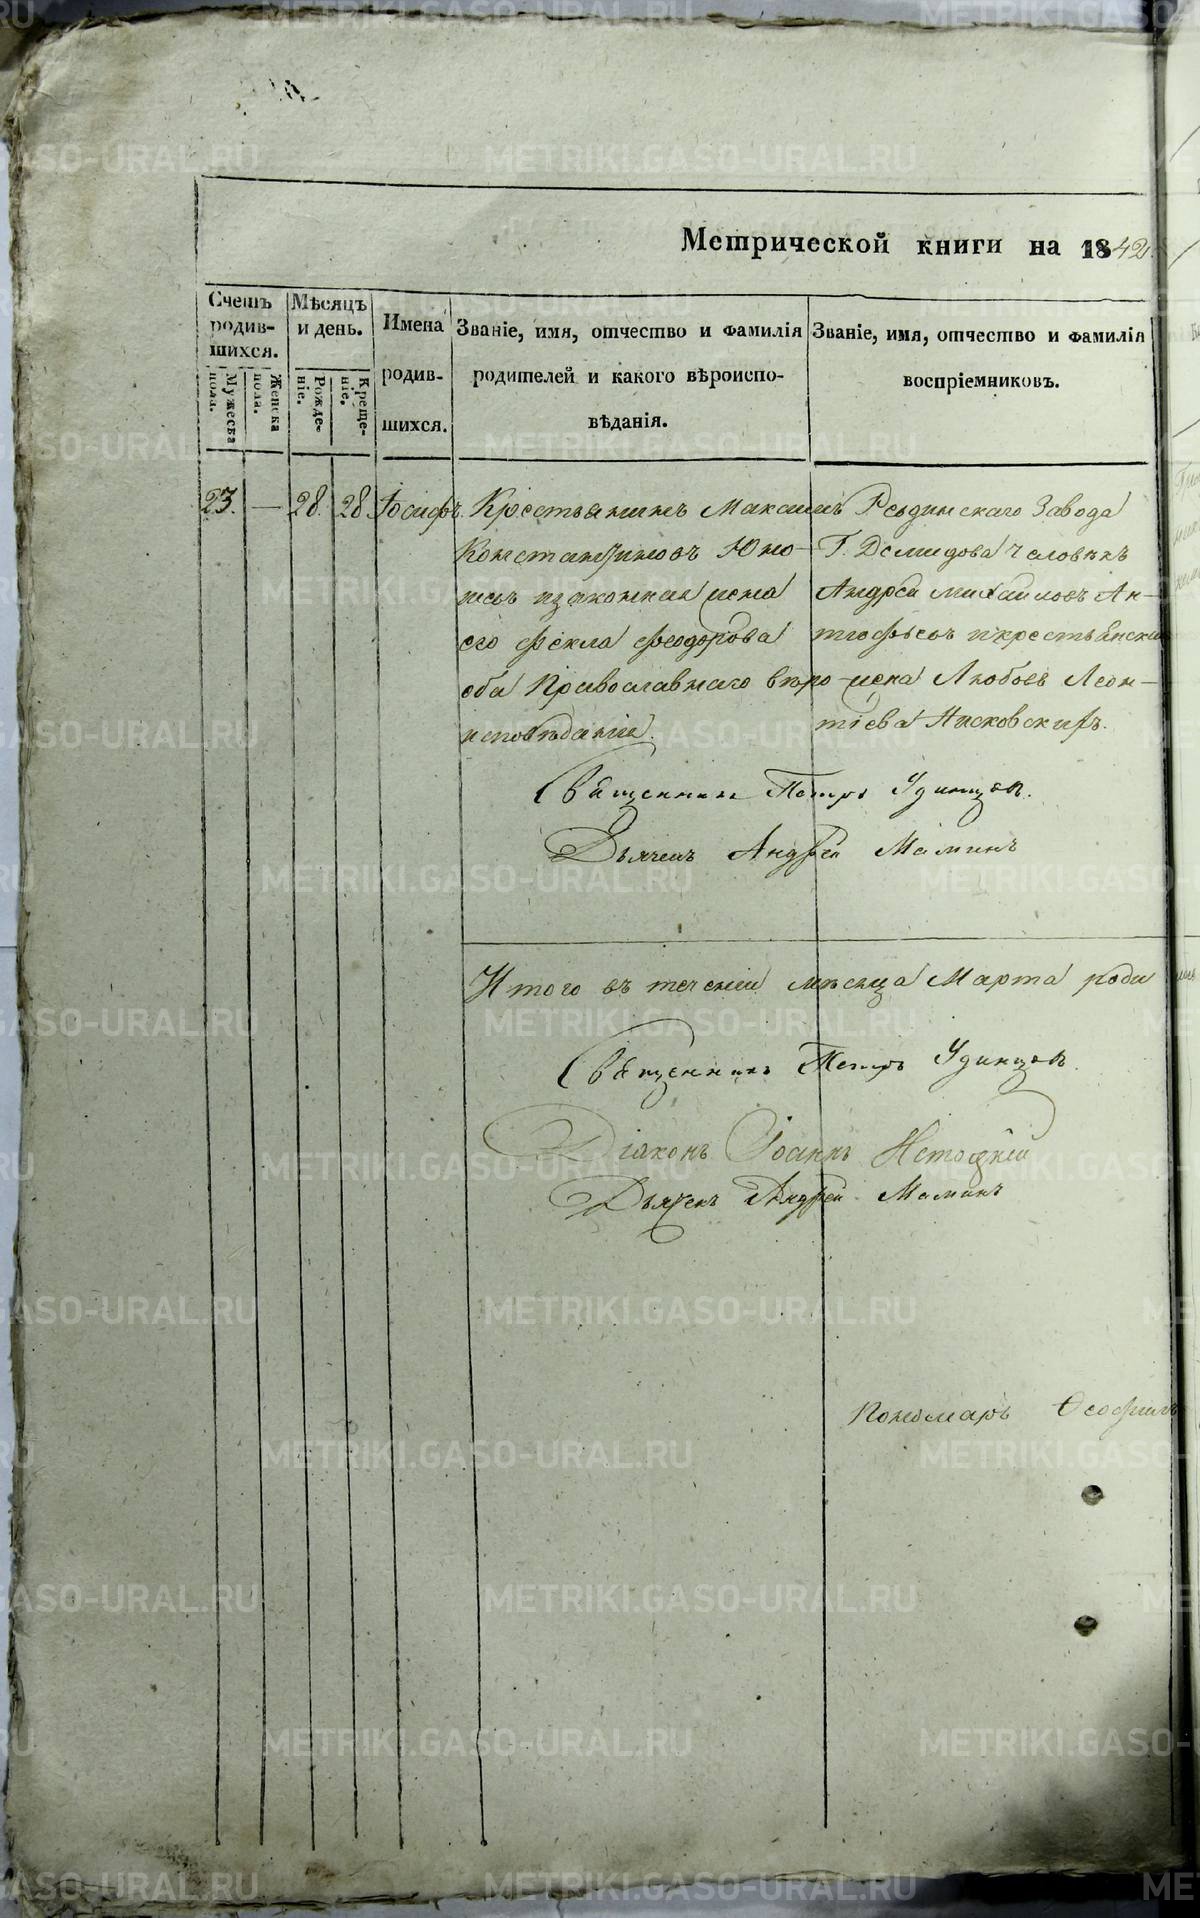 Метрической книги на 1842.
Счетъ родившихся.
Мужеска пола.
Женска пола.
Мѣсяцъ и день.
Рожденіе.
Крещеніе.
Имена родившихся.
Званіе, имя, отчество и фамилія
родителей и какого вѣроиспо-
вѣданія.
Званіе, имя, отчество и фамилія
воспріемниковъ.
23. — 28. 28 Іосифъ.
Крестьянинъ Максимъ
Константиновъ Юно-
его Фекла Феодорова
оба Православнаго вѣро-
исповѣданія.
Ревдинскаго Завода
Г. Демидова человѣкъ
Андрей Михайловъ Ан-
жена Любовь Леон-
тіева
Священникъ Петръ Удинцов.
Дьячекъ Андрей Маминъ
Итого въ теченіи мѣсяца Марта роди
Священникъ Петръ Удинцов
Діаконъ Іоаннъ
Дьячекъ Андрей Маминъ
Пономарь Ѳеофилъ
METRIKI.GASO-URAL.RU